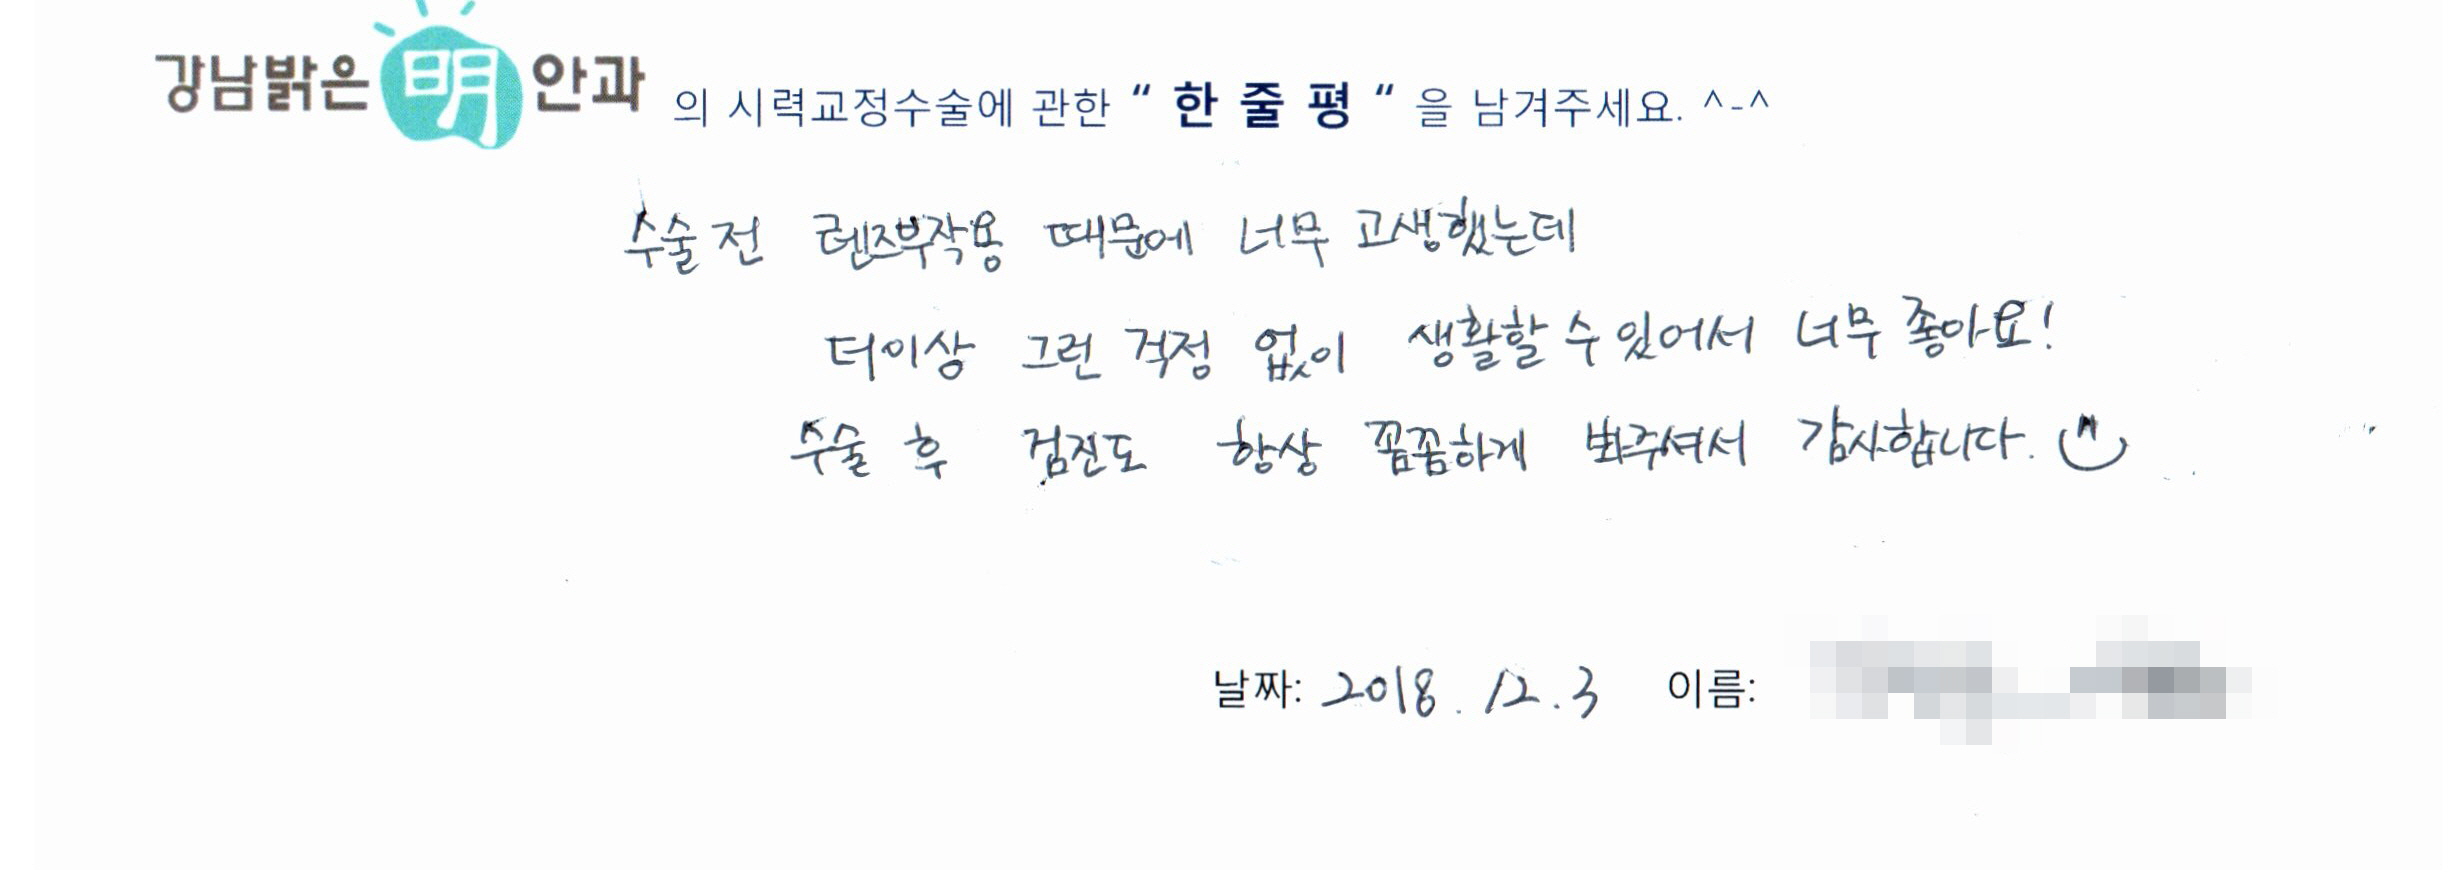 강남밝은明안과 의 시력교정수술에 관한 “ 한 줄 평 “ 을 남겨주세요. ^-^
수술 전 렌즈부작용 때문에 너무 고생했는데
더이상 그런 걱정 없이 생활할 수 있어서 너무 좋아요!
수술 후 검진도 항상 꼼꼼하게 봐주셔서 감사합니다.
날짜: 2018. 12. 3 이름: